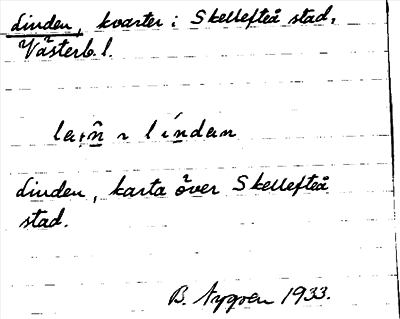 Linden, kvarter i Skellefteå stad,
Västerb. l.
l i ndan
Linden, karta över Skellefteå
stad.
B. Nygren 1933.